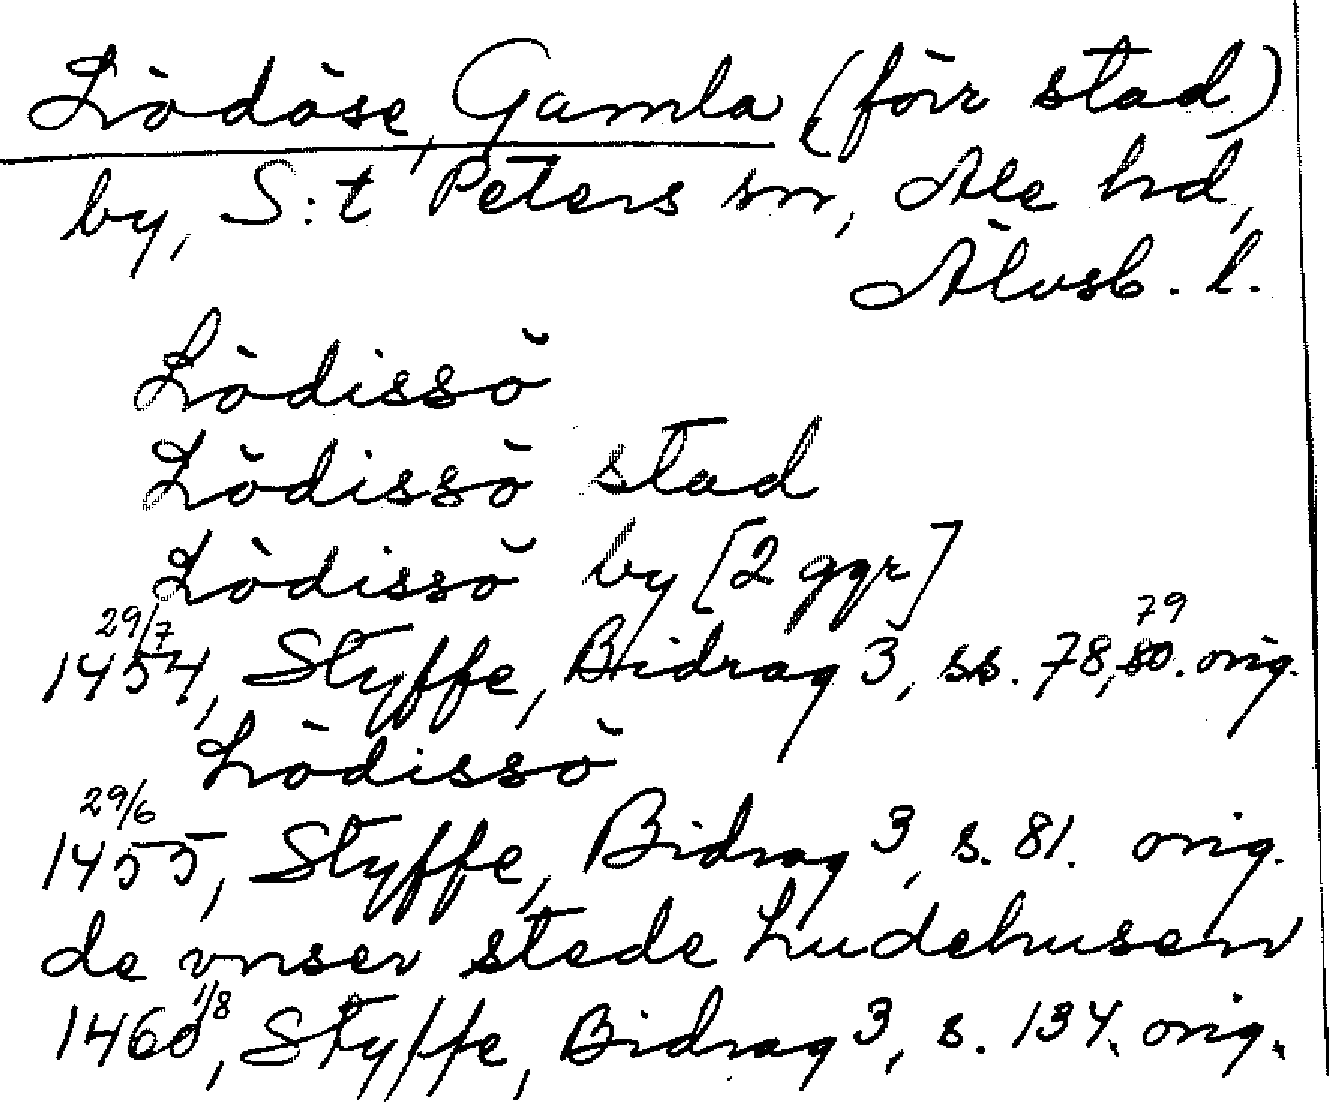 Lödöse, Gamla (förr stad)
by, S:t Peters sn, Ale hd,
Älvsb. l.
Lödissö
Lödissö stad
Lödissö by [2 ggr]
29/7 79
1454, Styffe, Bidrag 3, ss. 78, 80. orig.
Lödissö
29/6
1455, Styffe, Bidrag 3, s. 81. orig.
de vnser stede Ludehusen
1460 1/8, Styffe, Bidrag 3, s. 134. orig.